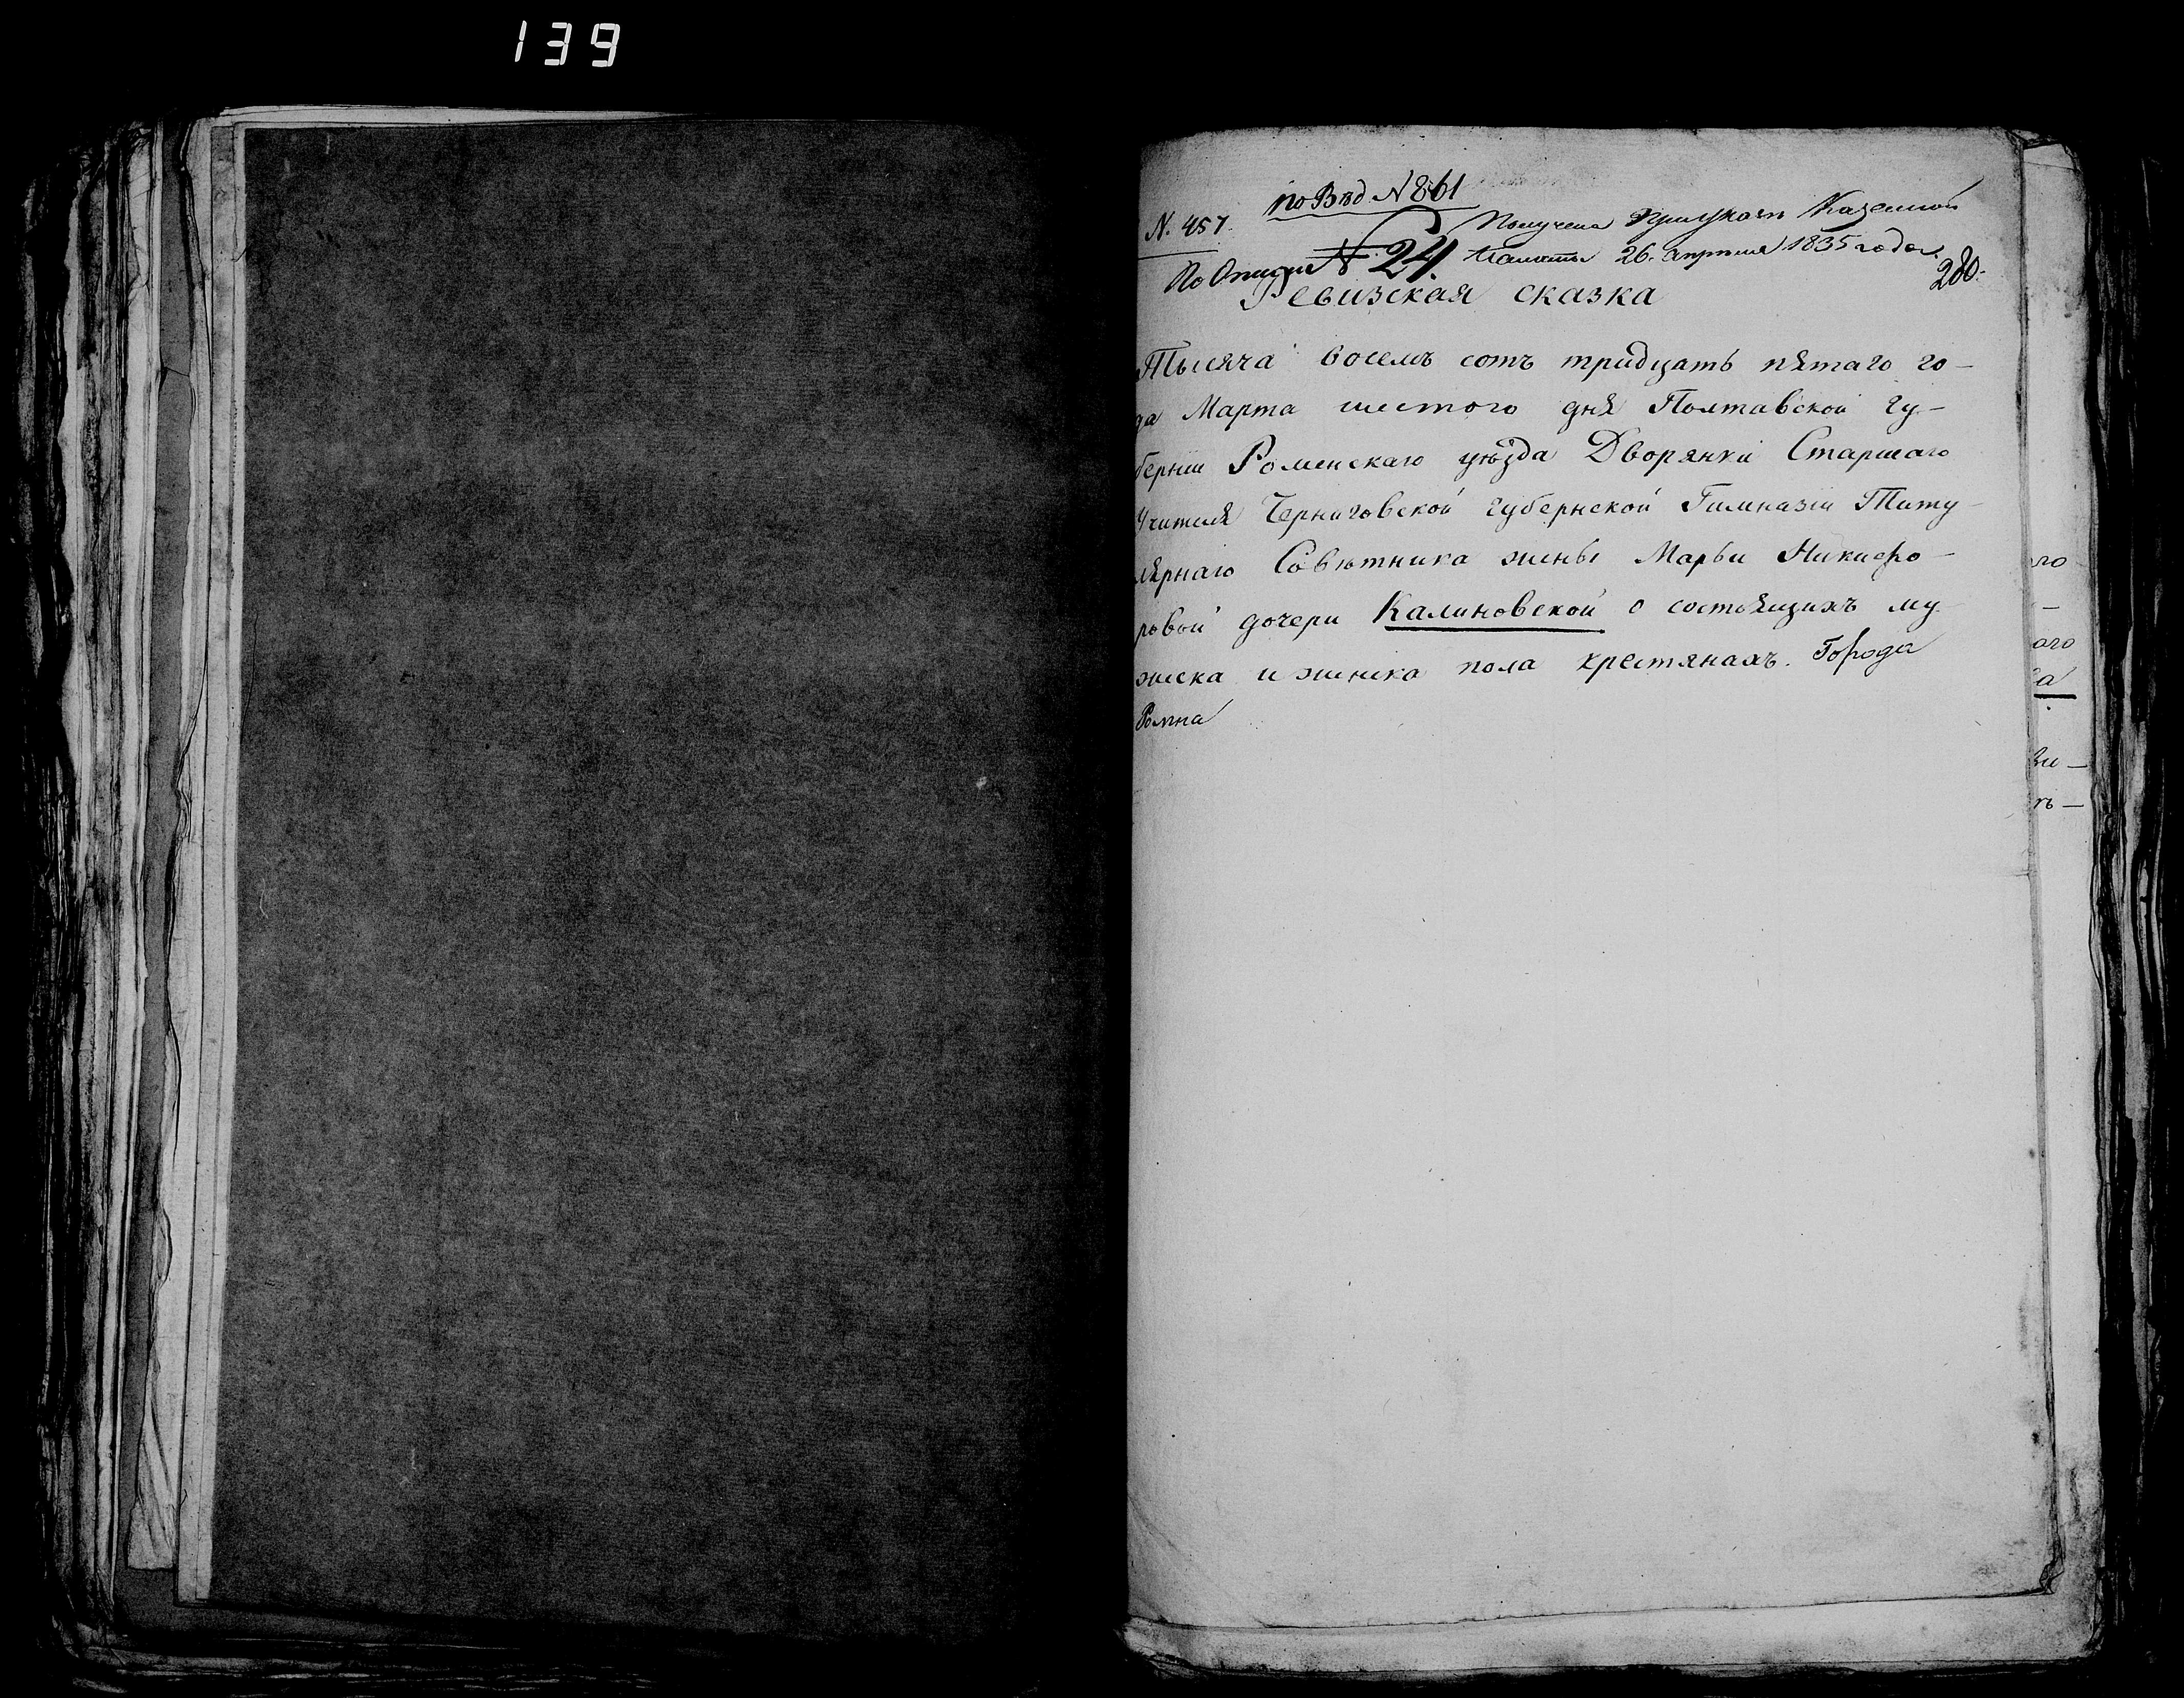 139
по Вѣд N 861
N. 457.
Получена при указѣ Казенной
Палаты 26. апрѣля 1835 года.
По Описи N 24.
280.
Ревизская сказка
Тысяча восемъ сотъ тридцать пятаго го-
да Марта шестого дня Полтавской гу-
берніи Роменскаго уѣзда Дворянки Старшаго
Учителя Черниговской губернской Гимназіи Титу-
лярнаго Совѣтника жены Марьи Никифо-
ровой дочери Калиновской о состоящихъ му
жеска и женска пола крестянахъ. Города
Ромна
ого
аго
а
зи-
хъ-